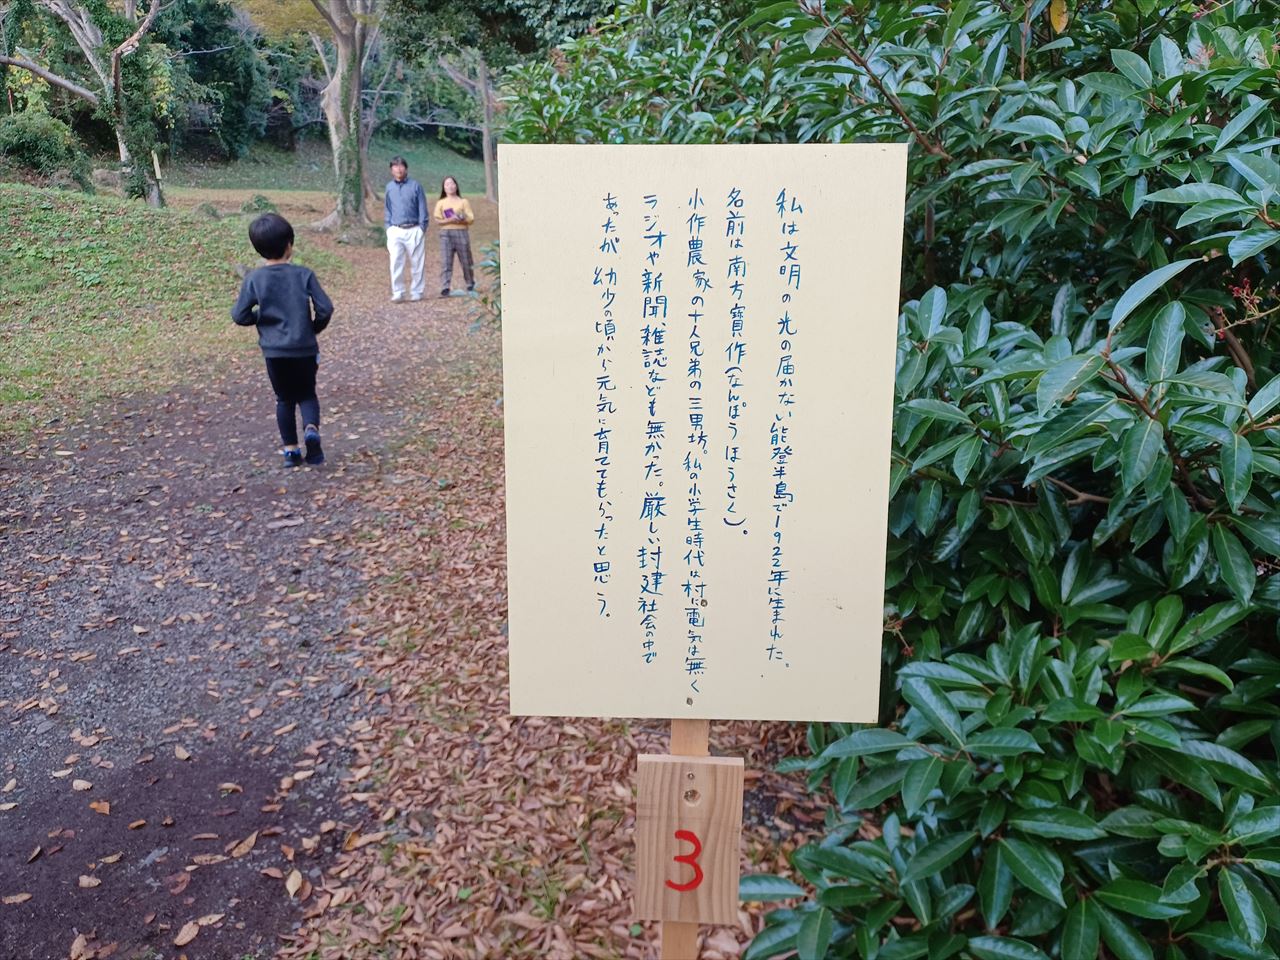 私は文明の光の届かない能登半島で1922年に生まれた。
名前は南方寶作(なんぽう ほうさく)。
小作農家の十人兄弟の三男坊。私の小学生時代は村に電気は無く
ラジオや新聞、雑誌なども無かった。厳しい封建社会の中で
あったが幼少の頃から元気に育ててもらったと思う。
3